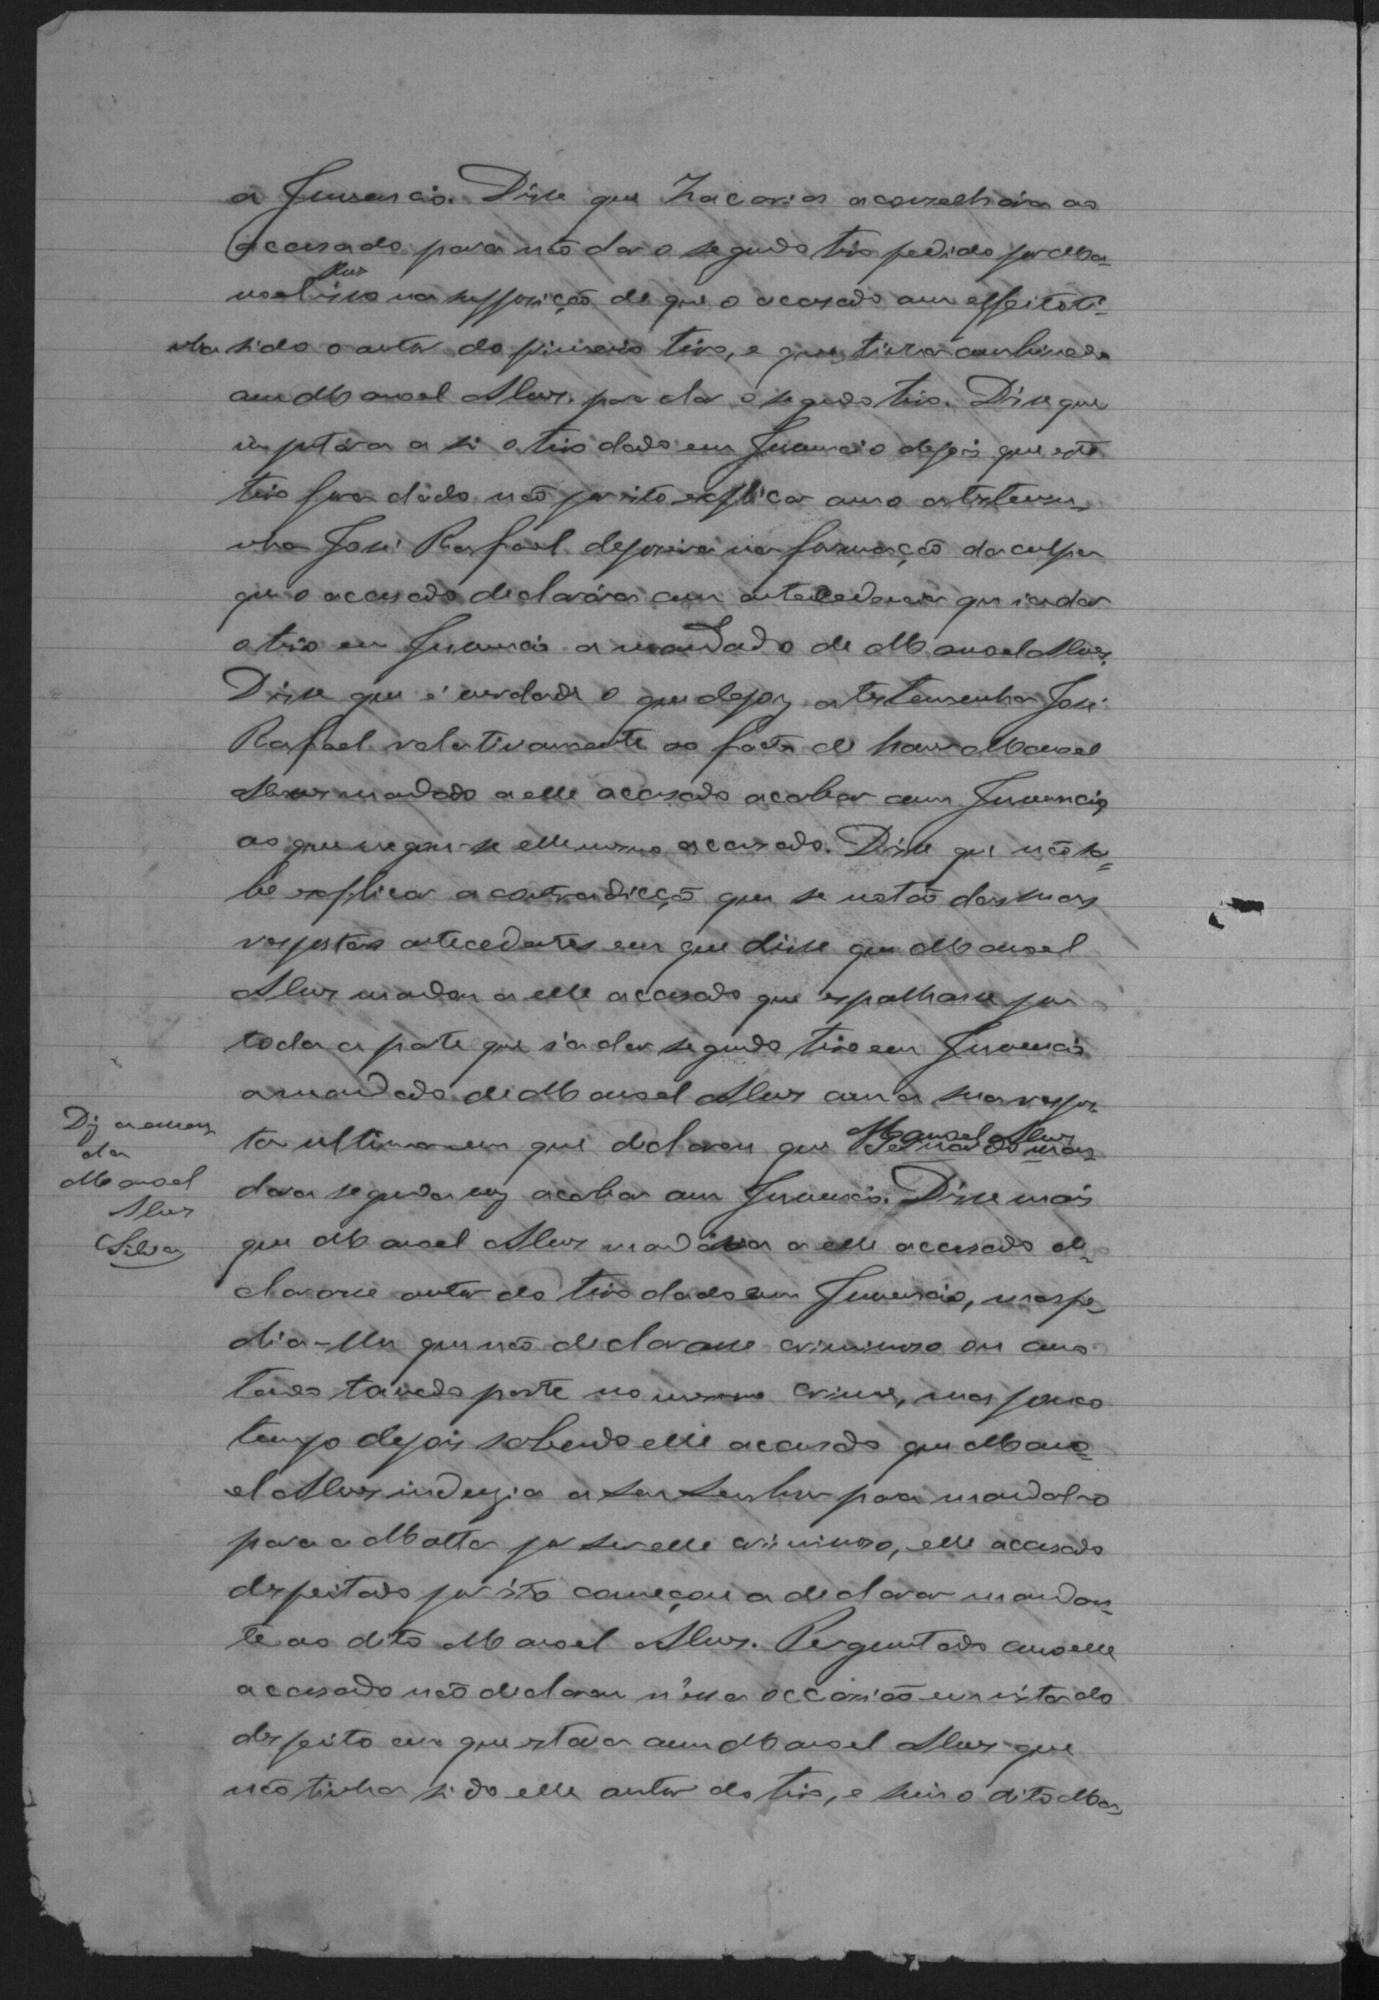 a Juvencio. Disse que Zacarias aconselhára ao
accusado para não dar o segundo tiro pedido por Ma-
noel Alvz isso na supposição de que o accusado com effeito ti-
nha sido o autor do primeiro tiro, e que tivera combinado
com Manoel Alvez. para dar o segundo tiro. Disse que
imputára a si o tiro dado em Juvencio depois que este
tiro fora dado não por isto explicar como a testemu-
nha José Rafael depozera na formação da culpa
que o accusado declarára com antecedencia que ia dar
o tiro em Juvencio a mandado de Manoel Alvez.
Disse que é verdade o que depoz a testemunha José
Rafael relativamente ao facto de haver Manoel
Alvez mandado a elle accusado acabar com Juvencio,
ao que negou-se elle mesmo accusado. Disse que não sa-
be explicar a contradicção que se nota das suas
respostas antecedentes em que disse que Manoel
Alvez mandou a elle accusado que espalhasse por
toda a parte que ia dar segundo tiro em Juvencio
a mandado de Manoel Alvez com a sua respos-
ta ultima em que declarou que Manoel Alvez man-
dara segunda vez acabar com Juvencio. Disse mais
que Manoel Alvez mandára a elle accusado de-
clarasse autor do tiro dado em Juvencio, mas pe-
dia-lhe que não declarasse criminoso ou como
tendo tomado parte no mesmo crime, mas pouco
tempo depois sabendo elle accusado que Mano-
el Alvez induzia a seu senhor para mandal-o
para a Matta por ser elle criminoso, elle accusado
despeitado por isto começou a declarar mandan-
te ao dito Manoel Alvez. Perguntado como elle
accusado não declarou n'essa occasião em vista do
despeito em que estava com Manoel Alvez que
não tinha sido elle autor do tiro, e sim o dito Ma-
Diz a emen-
da
Manoel
Alvez
Silva